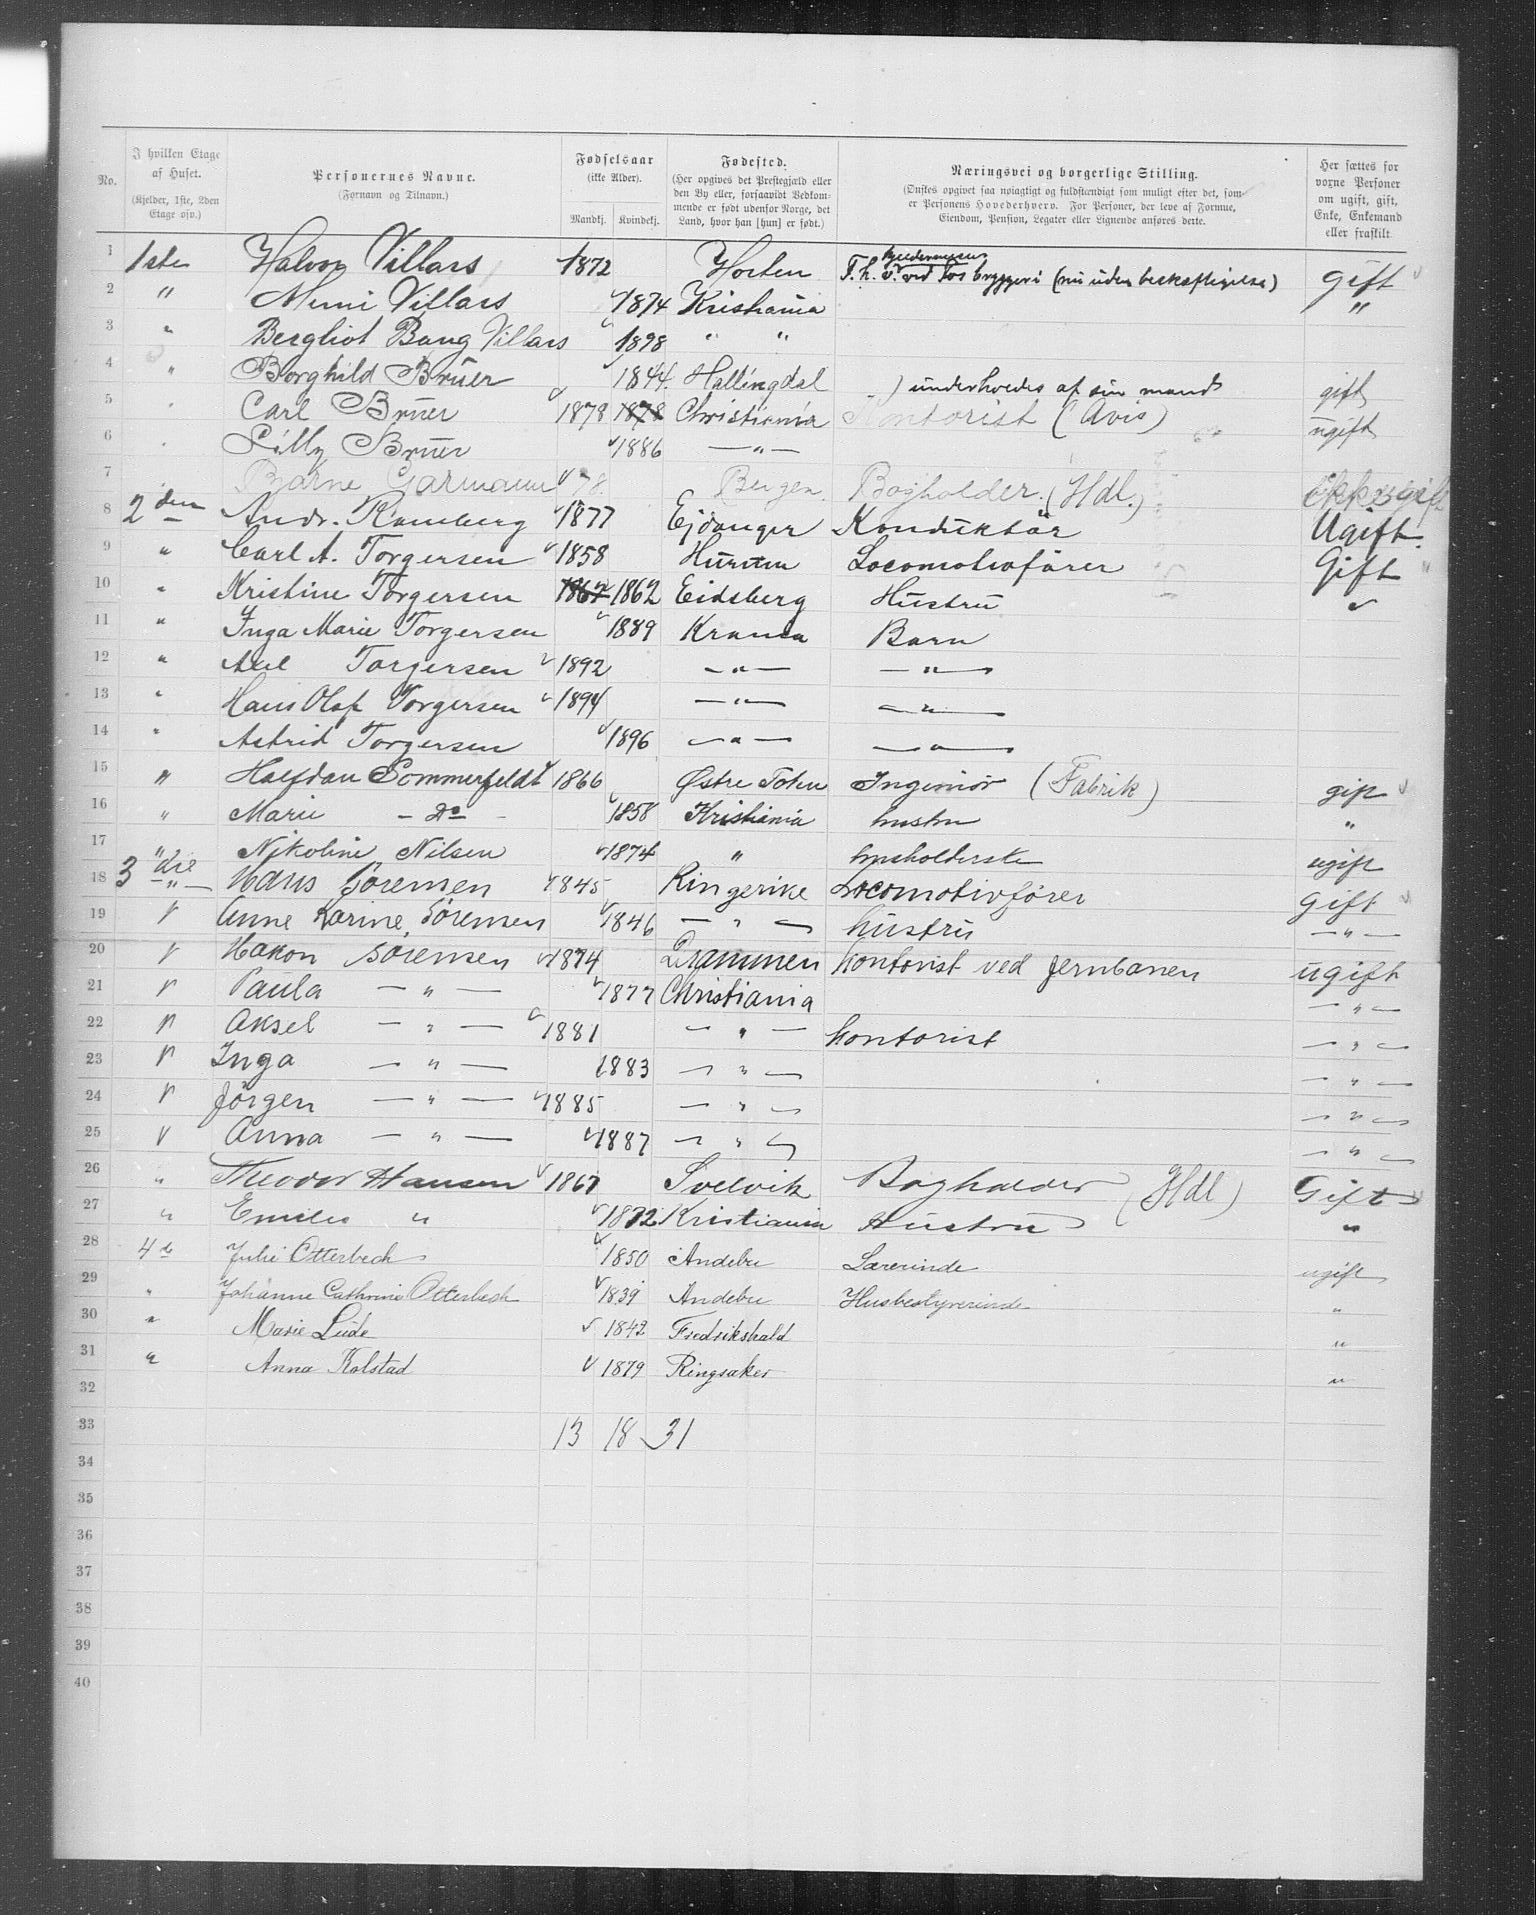 No. | I hvilken Etage af Huset. (Kjelder, 1ste, 2den Etage osv.) | Personernes Navne. (Fornavn og Tilnavn.) | Fødselsaar (ikke Alder). Mandkj. Kvindekj. | Fødested. (Her opgives det Prestegjæld eller den By eller, forsaavidt Vedkommende er født udenfor Norge, det Land, hvor han [hun] er født.) | Næringsvei og borgerlige Stilling. (Ønskes opgivet saa nøiagtigt og fuldstændigt som muligt efter det, som er Personens Hovederhverv. For Personer, der leve af Formue, Eiendom, Pension, Legater eller Lignende anføres dette. | Her sættes for voxne Personer om ugift, gift, Enke, Enkemand eller fraskilt
1 1ste Halvor Villars 1872 Horten F. h. v. ved Fos bryggeri (nu uden beskæftigelse) gift
2 " Mimi Villars 1874 Kristiania "
3 " Bergliot Bang Villars 1898 " "
4 " Borghild Brüer 1844 Hallingdal ) underholdes af sin mand gift
5 " Carl Brüer 1878 1878 Christiania Kontorist (Avis) ugift
6 " Lilly Brüer 1886 — " —
7 Bjarne Garmann 78 Bergen. Bogholder. (Hdl.)
8 2den Andr. Ramberg 1877 Ejdanger Konduktør Ugift.
9 " Carl A. Torgersen 1858 Hurum Locomotivfører Gift
10 " Kristine Torgersen 1862 1862 Eidsberg Hustru "
11 " Inga Marie Torgersen 1889 Krania Barn
12 " Axel Torgersen 1892 — " — — " —
13 " Hans Olaf Torgersen 1894 — " — — " —
14 " Astrid Torgersen 1896 — " — — " —
15 " Halfdan Sommerfeldt 1866 Østre Toten Ingeniør (Fabrik) gift
16 " Marie — do — 1858 Kristiania hustru "
17 " Nikoline Nilsen 1874 " husholderske ugift
18 3die — " — Hans Sørensen 1845 Ringerike Locomotivfører gift
19 " Anne Karine Sørensen 1846 — " — hustru — " —
20 " Hakon Sørensen 1874 Drammen kontorist ved Jernbanen ugift
21 " Paula — " — 1877 Christiania — " —
22 " Aksel — " — 1881 — " — kontorist — " —
23 " Inga — " — 1883 — " — — " —
24 " Jörgen — " — 1885 — " — — " —
25 " Anna — " — 1887 — " — — " —
26 " Theodor Hansen 1867 Svelvik Bogholder (Hdl) Gift
27 " Emilie " 1872 Kristiania Hustru "
28 4de Julie Otterbech 1850 Andebu Lærerinde ugift
29 " Johanne Cathrine Otterbech 1839 Andebu Husbestyrerinde "
30 " Marie Lüde 1842 Fredrikshald "
31 " Anna Kolstad 1879 Ringsaker "
32
33 13 18 31
34
35
36
37
38
39
40